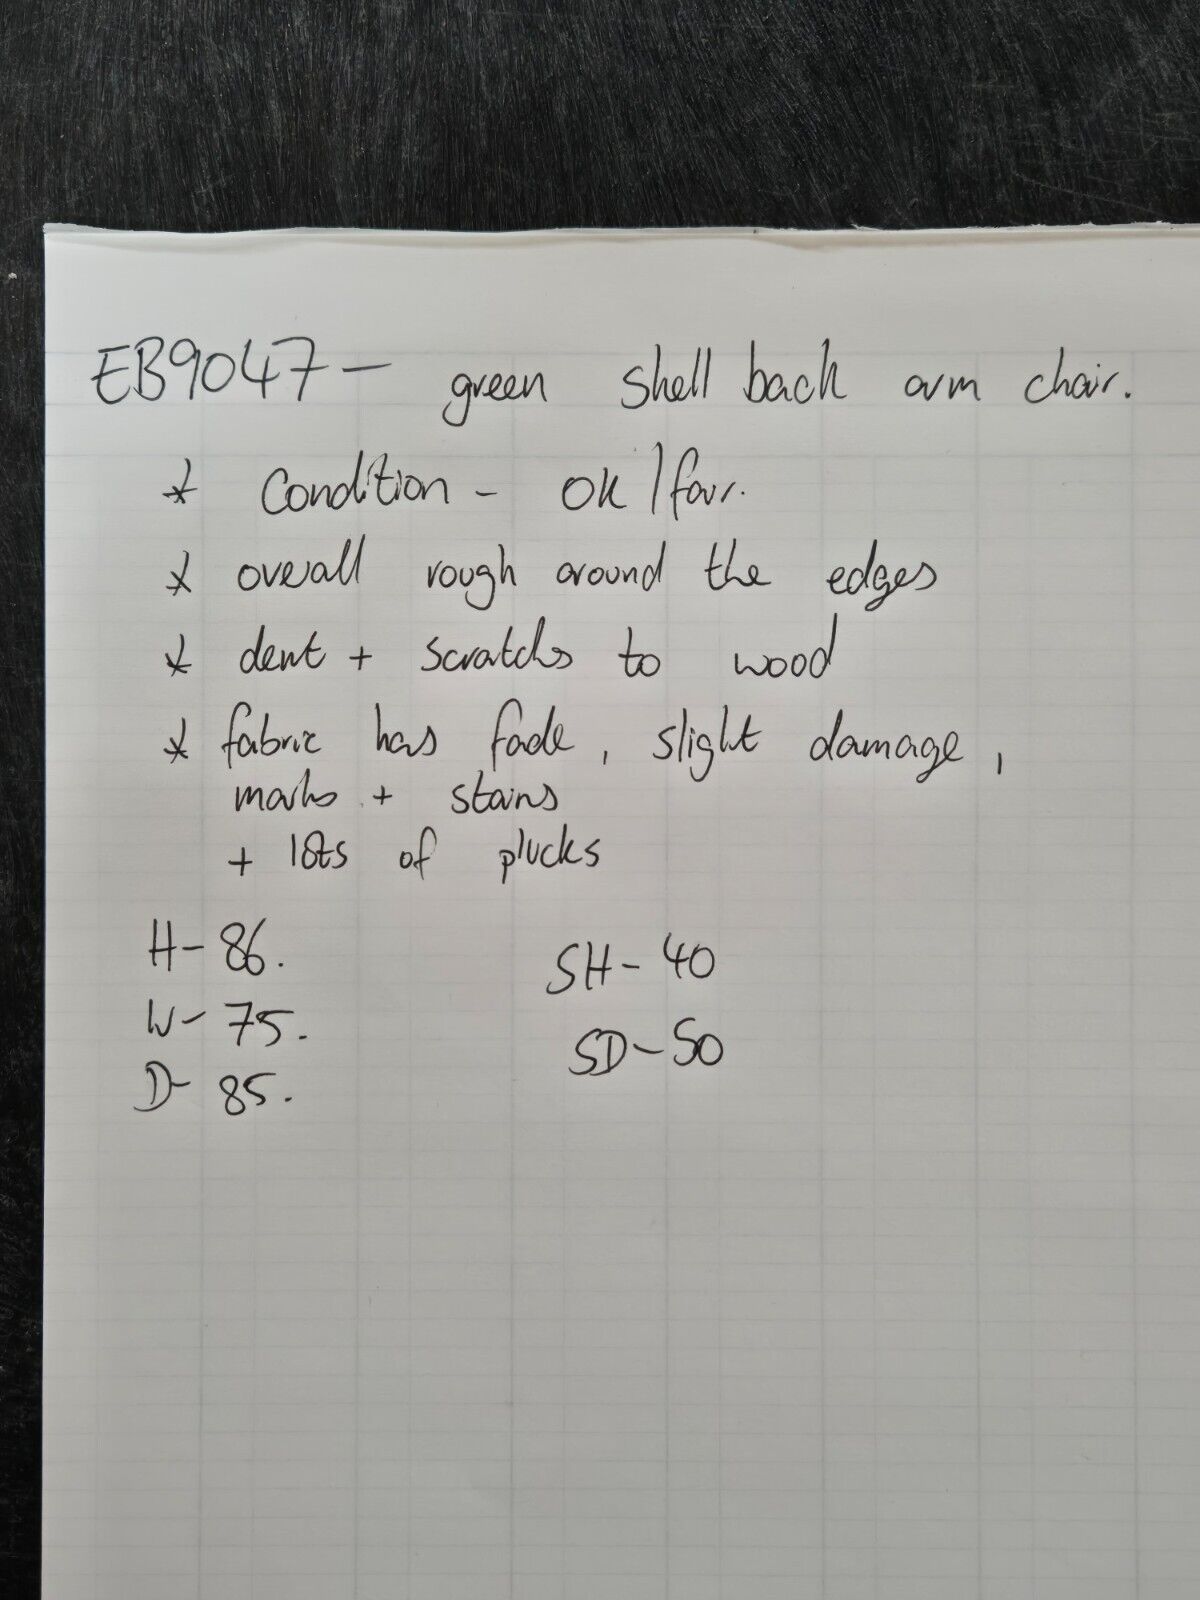 EB9047 - green shell back arm chair.
* Condition - OK/fair.
* overall rough around the edges
* dent + scratchs to wood
* fabric has fade, slight damage,
marks + stains
+ lots of plucks
H- 86. SH- 40
W- 75. SD- 50
D- 85.